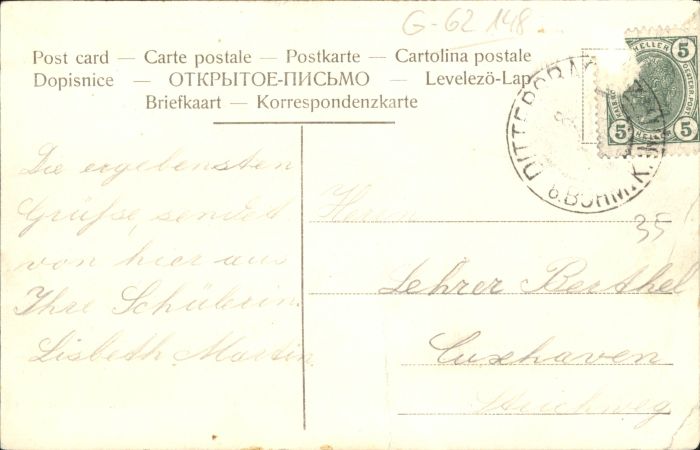 G-62 148
Post card — Carte postale — Postkarte — Cartolina postale
Dopisnice — ОТКРЫТОЕ-ПИСЬМО — Levelezö-Lap
Briefkaart — Korrespondenzkarte
5 HELLER 5
5 5
DITTERSBACH
B.BÖHM.K.
Die ergebensten
Grüße, sendet
von hier aus
Ihre Schülerin
Lisbeth Martin
Herrn
35
Lehrer Berthel
Cuxhaven